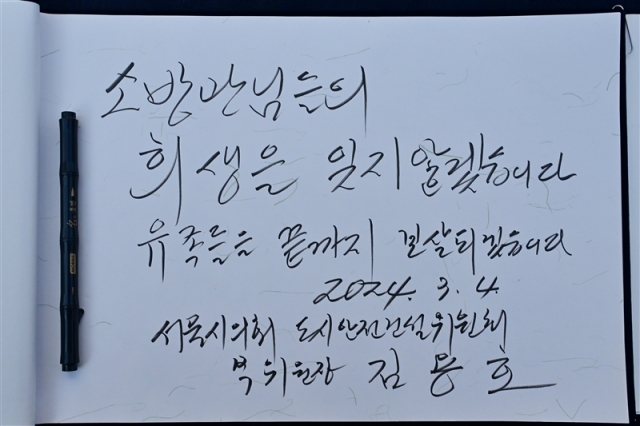 소방관님들의
희생을 잊지 않겠습니다
유족들을 끝까지 보살피겠습니다
2024. 3. 4.
서울시의회 도시안전건설위원회
부위원장 김용호